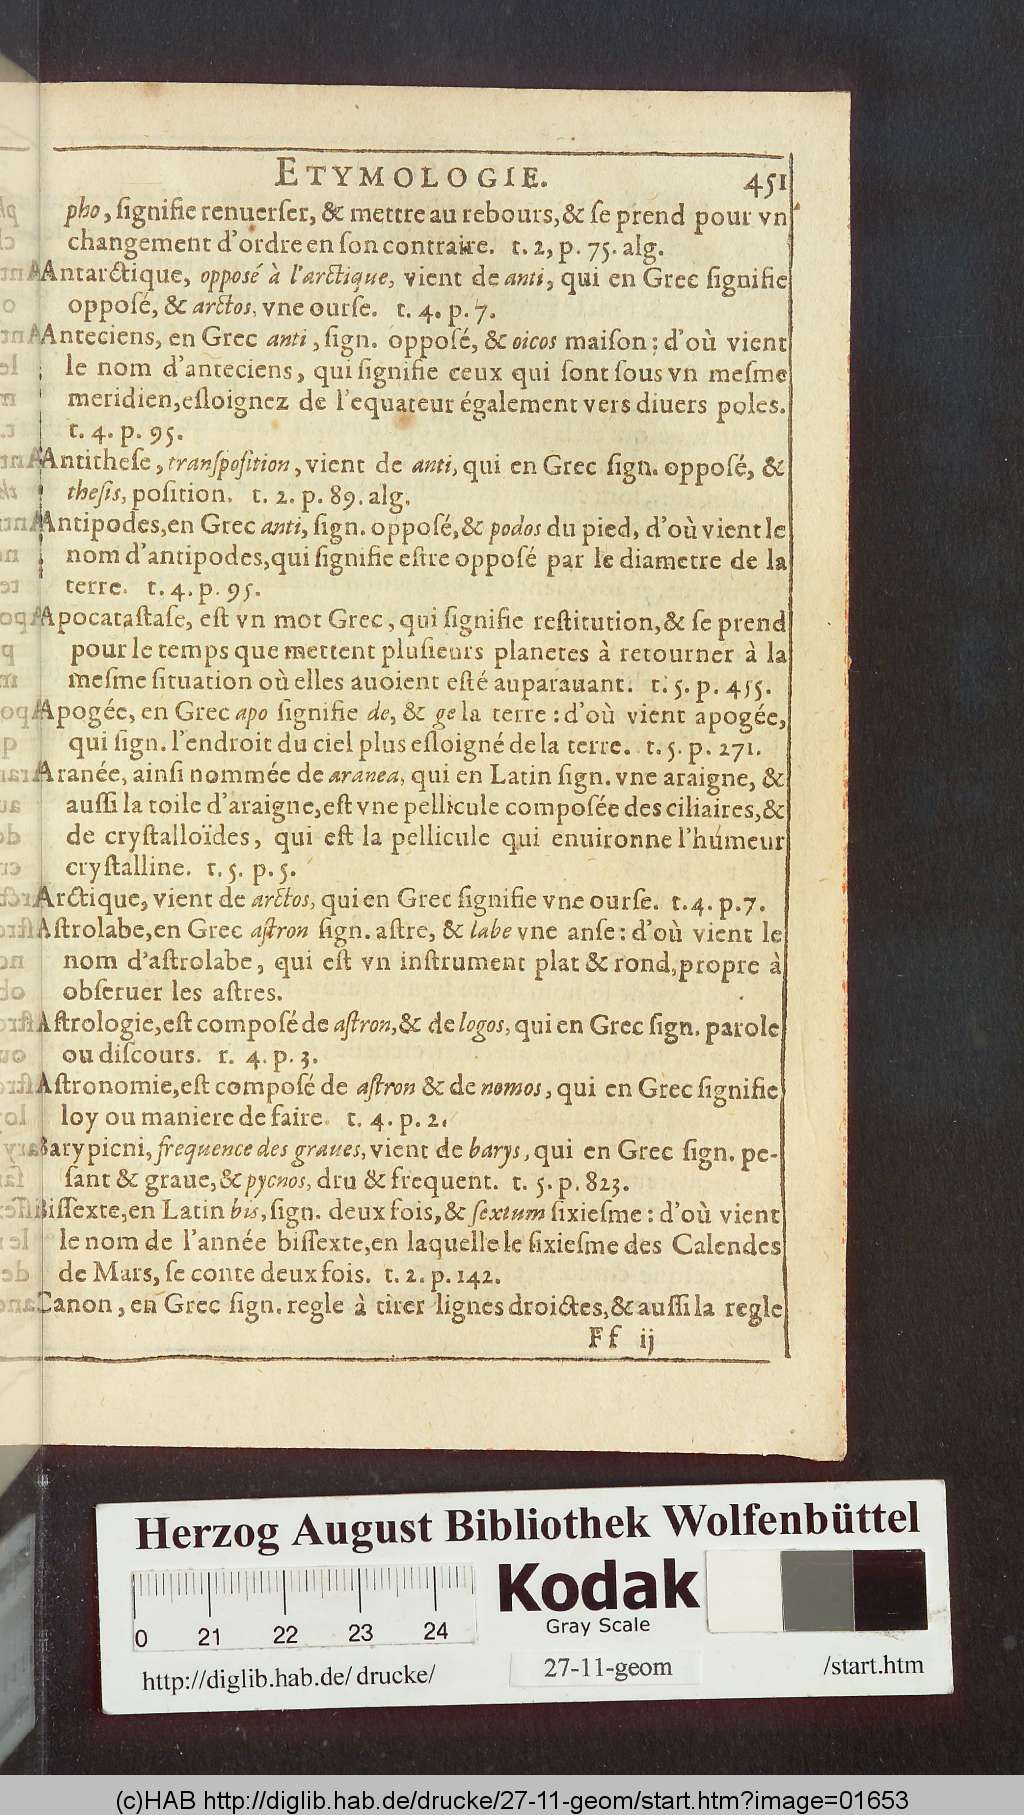 ETYMOLOGIE. 451
pho, ſignifie renuerſer, & mettre au rebours, & ſe prend pour vn
changement d'ordre en ſon contraire. t. 2, p. 75. alg.
Antarctique, opposé à l'arctique, vient de anti, qui en Grec ſignifie
oppoſé, & arctos, vne ourſe. t. 4. p. 7.
Anteciens, en Grec anti, ſign. oppoſé, & oicos maiſon: d'où vient
le nom d'anteciens, qui ſignifie ceux qui ſont ſous vn meſme
meridien, eſloignez de l'equateur également vers diuers poles.
t. 4. p. 95.
Antitheſe, tranſpoſition, vient de anti, qui en Grec ſign. oppoſé, &
theſis, poſition. t. 2. p. 89. alg.
Antipodes, en Grec anti, ſign. oppoſé, & podos du pied, d'où vient le
nom d'antipodes, qui ſignifie eſtre oppoſé par le diametre de la
terre. t. 4. p. 95.
Apocataſtaſe, eſt vn mot Grec, qui ſignifie reſtitution, & ſe prend
pour le temps que mettent pluſieurs planetes à retourner à la
meſme ſituation où elles auoient eſté auparauant. t. 5. p. 455.
Apogée, en Grec apo ſignifie de, & ge la terre: d'où vient apogée,
qui ſign. l'endroit du ciel plus eſloigné de la terre. t. 5. p. 271.
Aranée, ainſi nommée de aranea, qui en Latin ſign. vne araigne, &
auſſi la toile d'araigne, eſt vne pellicule compoſée des ciliaires, &
de cryſtalloïdes, qui eſt la pellicule qui enuironne l'humeur
cryſtalline. t. 5. p. 5.
Arctique, vient de arctos, qui en Grec ſignifie vne ourſe. t. 4. p. 7.
Aſtrolabe, en Grec aſtron ſign. aſtre, & labe vne anſe: d'où vient le
nom d'aſtrolabe, qui eſt vn inſtrument plat & rond, propre à
obſeruer les aſtres.
Aſtrologie, eſt compoſé de aſtron, & de logos, qui en Grec ſign. parole
ou diſcours. t. 4. p. 3.
Aſtronomie, eſt compoſé de aſtron & de nomos, qui en Grec ſignifie
loy ou maniere de faire. t. 4. p. 2.
Barypicni, frequence des graues, vient de barys, qui en Grec ſign. pe-
ſant & graue, & pycnos, dru & frequent. t. 5. p. 823.
Biſſexte, en Latin bis, ſign. deux fois, & ſextum ſixieſme: d'où vient
le nom de l'année biſſexte, en laquelle le ſixieſme des Calendes
de Mars, ſe conte deux fois. t. 2. p. 142.
Canon, en Grec ſign. regle à tirer lignes droictes, & auſſi la regle
Ff ij
Herzog August Bibliothek Wolfenbüttel
0 21 22 23 24
Kodak
Gray Scale
http://diglib.hab.de/ drucke/ 27-11-geom /start.htm
(c)HAB http://diglib.hab.de/drucke/27-11-geom/start.htm?image=01653